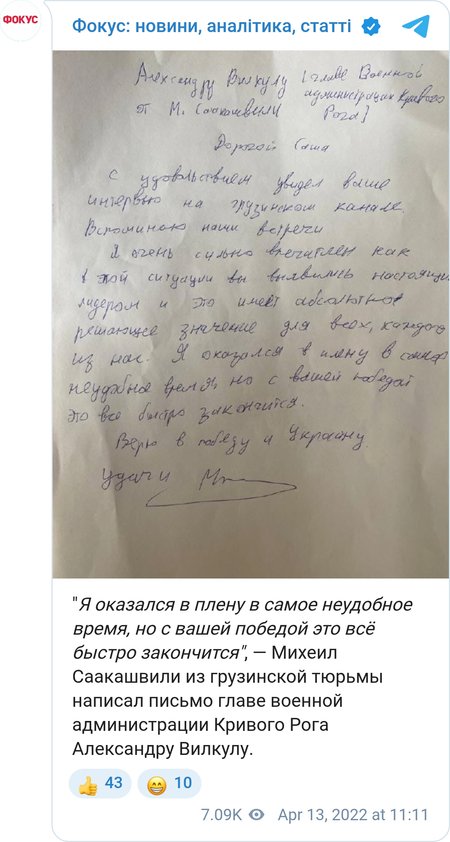 ФОКУС
Фокус: новини, аналітика, статті
Александру Вилкулу [главе Военной
администрации Кривого
от М. Саакашвили Рога]
Дорогой Саша
С удовольствием увидел ваше
интервью на грузинском канале.
Вспоминаю наши встречи
Я очень сильно впечатлен как
в этой ситуации вы выявились настоящим
лидером и это имеет абсолютно
решающее значение для всех, каждого
из нас. Я оказался в плену в самое
неудобное время, но с вашей победой
это все быстро закончится.
Верю в победу и Украину
Удачи
"Я оказался в плену в самое неудобное
время, но с вашей победой это всё
быстро закончится", — Михеил
Саакашвили из грузинской тюрьмы
написал письмо главе военной
администрации Кривого Рога
Александру Вилкулу.
43 10
7.09K Apr 13, 2022 at 11:11